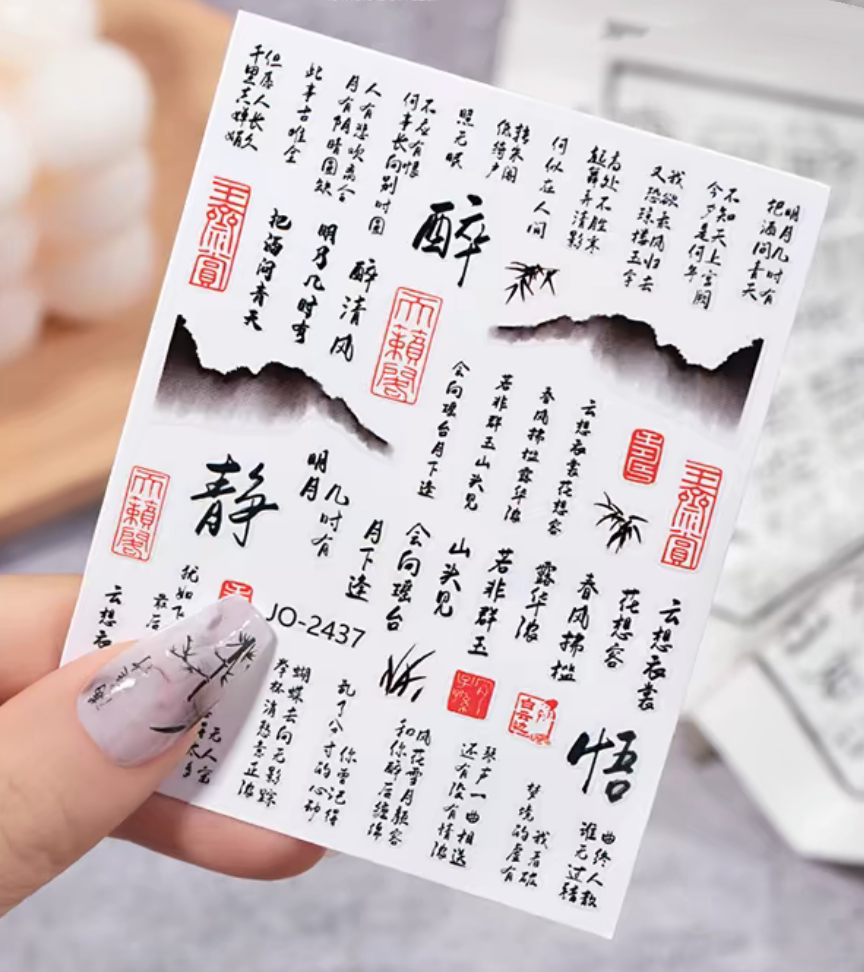 明月几时有
把酒问青天
不知天上宫阙
今夕是何年
我欲乘风归去
又恐琼楼玉宇
高处不胜寒
起舞弄清影
何似在人间
转朱阁
低绮户
照无眠
不应有恨
何事长向别时圆
人有悲欢离合
月有阴晴圆缺
此事古难全
但愿人长久
千里共婵娟
醉
醉清风
明月几时有
把酒问青天
云想衣裳花想容
春风拂槛露华浓
若非群玉山头见
会向瑶台月下逢
明月
几时有
静
云想衣裳
花想容
春风拂槛
露华浓
若非群玉
山头见
会向瑶台
月下逢
JO-2437
犹如飞
最后
云想衣
悟
曲终人散
谁无过错
我看破
梦境的虚有
琴声一曲相送
还有没有情浓
风花雪月
和你醉后缠绵
你曾记得
乱了分寸的心动
蝴蝶去向无影踪
举杯消愁意正浓
无人宠
太多